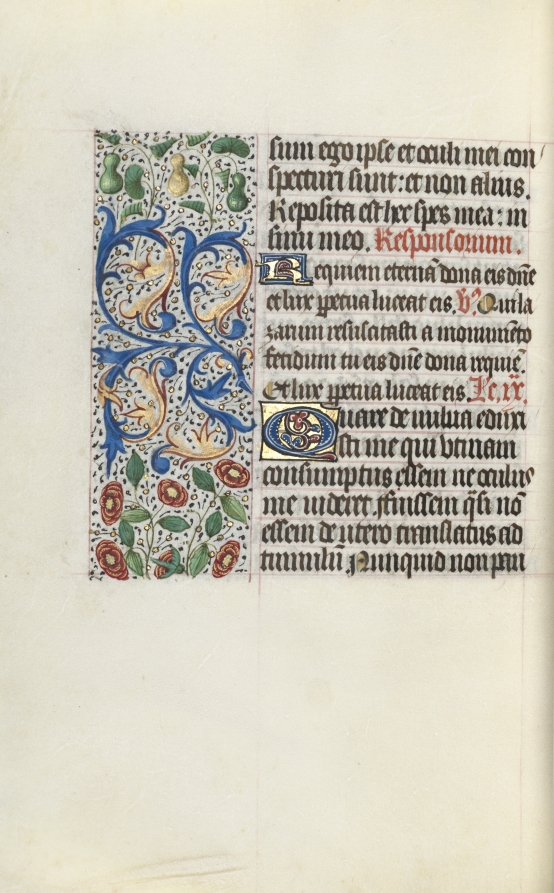 sum ego ipse et oculi mei con
specturi sunt: et non alius.
Reposita est hec spes mea: in
sinu meo. Responsorium.
Requiem eternā dona eis dñe
et lux ꝑpetua luceat eis. V̾. Qui la
zarum resuscitasti a monumēto
fetidum tu eis dñe dona requiē.
Et lux ꝑpetua luceat eis. Lc. ix.
Quare de vulua eduxi
sti me qui vtinam
consumptus essem ne oculus
me uideret. fuissem q̄si nō
essem de utero translatus ad
tumulū. Nunquid non pau